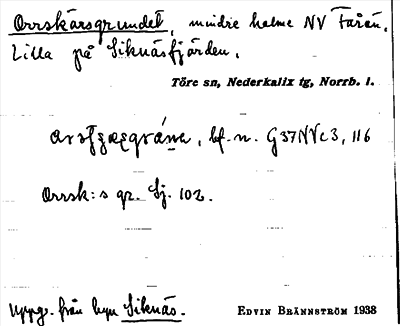 Orrskärsgrundet, mindre holme NV Farön,
Lilla på Siknäsfjärden.
Töre sn, Nederkalix tg, Norrb. l.
bf. n. G37NVc3, 116
Orrsk:s gr. Sj. 102.
Uppg. från byn Siknäs.
EDVIN BRÄNNSTRÖM 1938